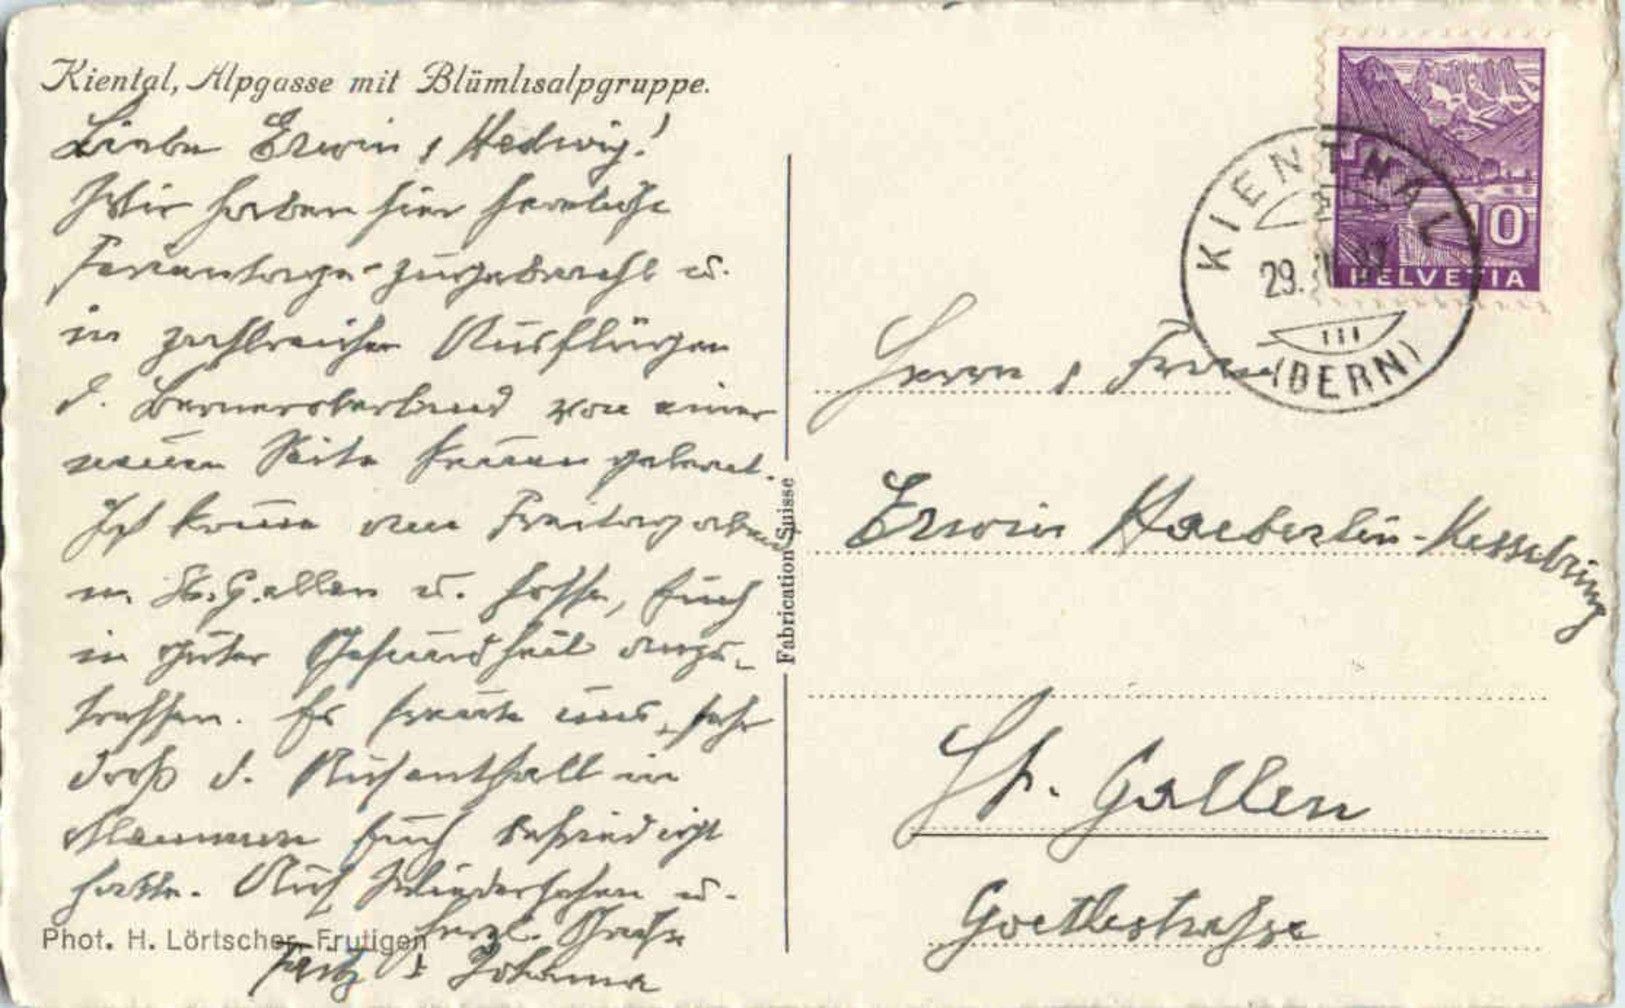 Kiental, Alpgasse mit Blümlisalpgruppe.
Liebe Erwin & Hedwig!
Wir haben hier herrliche
Ferientage zugebracht u.
in zahlreichen Ausflügen
d. Berneroberland von einer
neuen Seite kennen gelernt.
Ich komme am Freitag abend
n. St. Gallen u. hoffe, Euch
in guter Gesundheit anzu-
treffen. Es freute uns, sehr
daß d. Aufenthalt in
Euch befriedigt
hatte. Auf Wiedersehen u.
herzl. Grüße
Fritz & Johanna
Phot. H. Lörtscher, Frutigen
Fabrication Suisse
KIENTHAL
29.
(BERN)
10
HELVETIA
Herrn & Frau
Erwin Haeberlin-Kesselring
St. Gallen
Goethestraße